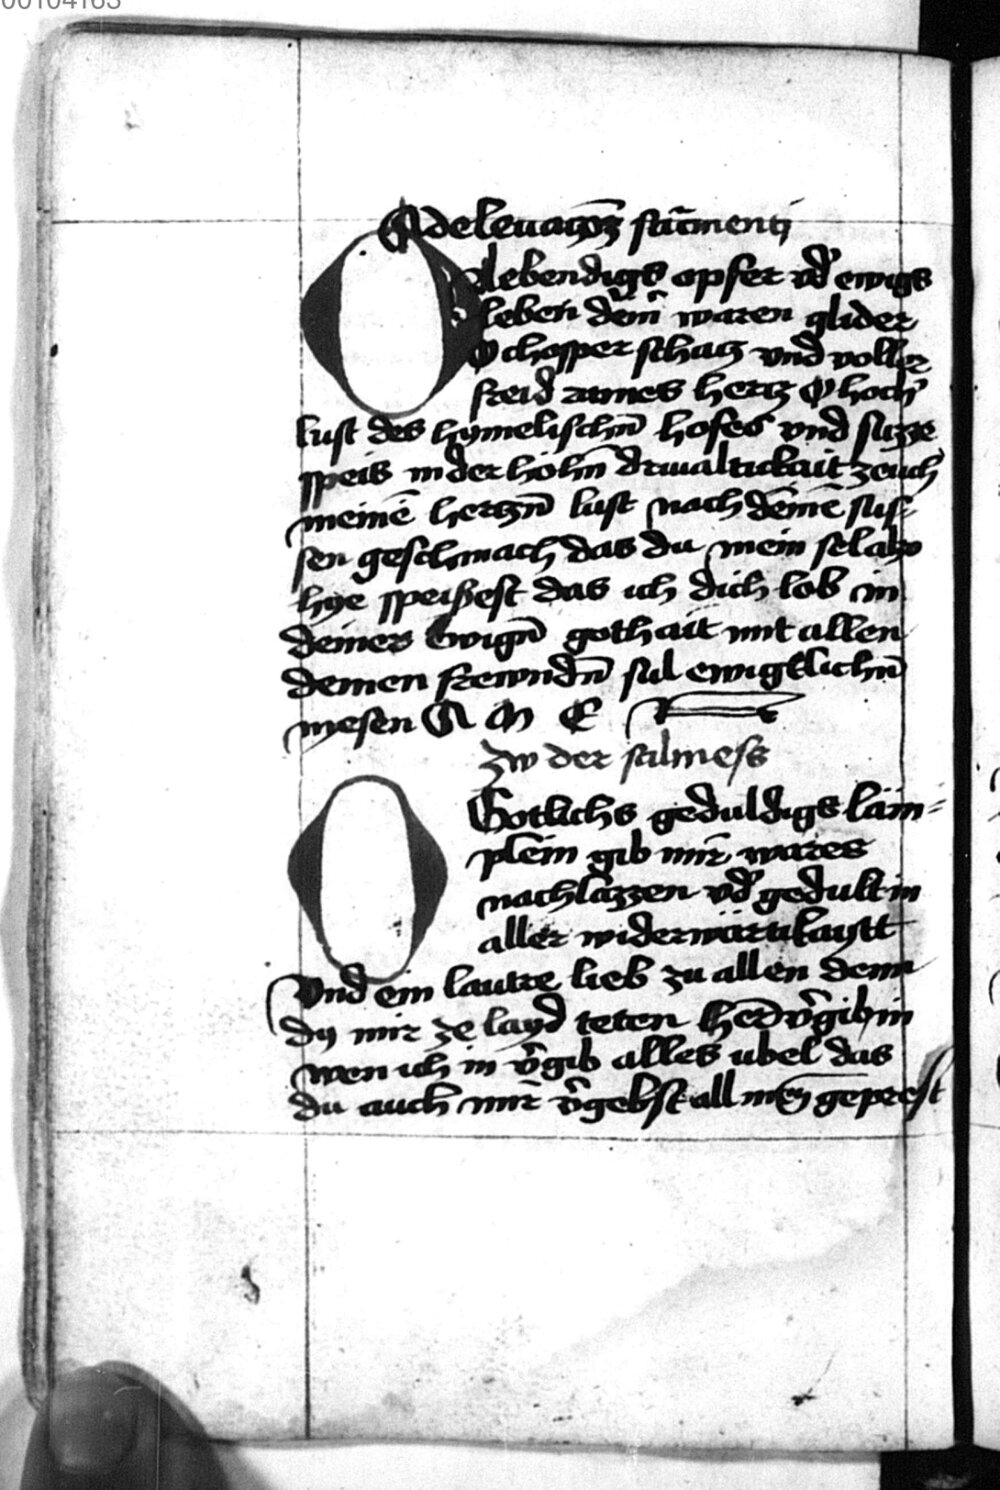 00104163
Ad elevacōꝫ sac̄menti
O lebendigs opfer vn̄d ewigs
leben dein̄ waren glider
O chosper schacz vnd voller
freid armes hertz O hoch
lust des hymelischn̄ hofes vnd suzze
speis in der hohn̄ driualtickait zeuch
meinē hertzn̄ lust nach deinē sus-
sen geschmach das du mein sel also
hye speisest das ich dich lob in
deiner Ewign̄ gothait mit allen
deinen frewndn̄ sul ewigklichn̄
wesen A M E
Zw der stilmess
O Gotlichs geduldigs läm-
plein gib mir wares
nachlazzen vn̄d gedult in
aller widerwärtikaytt
Vnd ein lautre lieb zu allen denn
dy mir ze layd teten her v̄gib in
wen ich in v̄gib alles ubel das
du auch mir v̄gebst all mey geprest